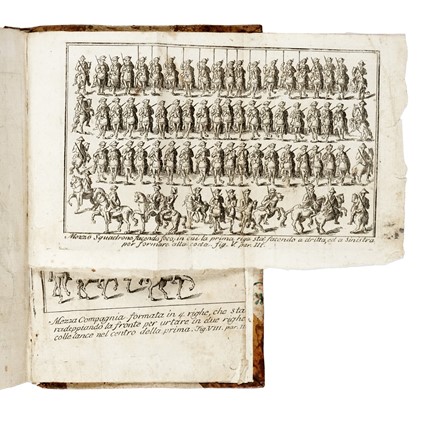 Mezzo Squadrone facendo foco, in cui la prima riga sta facendo a dritta, ed a Sinistra
per formare alla coda. fig. V. par. III.
Mezza Compagnia formata in 4. righe, che sta
radoppiando la fronte per urtare in due righe
colle lance nel centro della prima. Fig. VIII. par. II